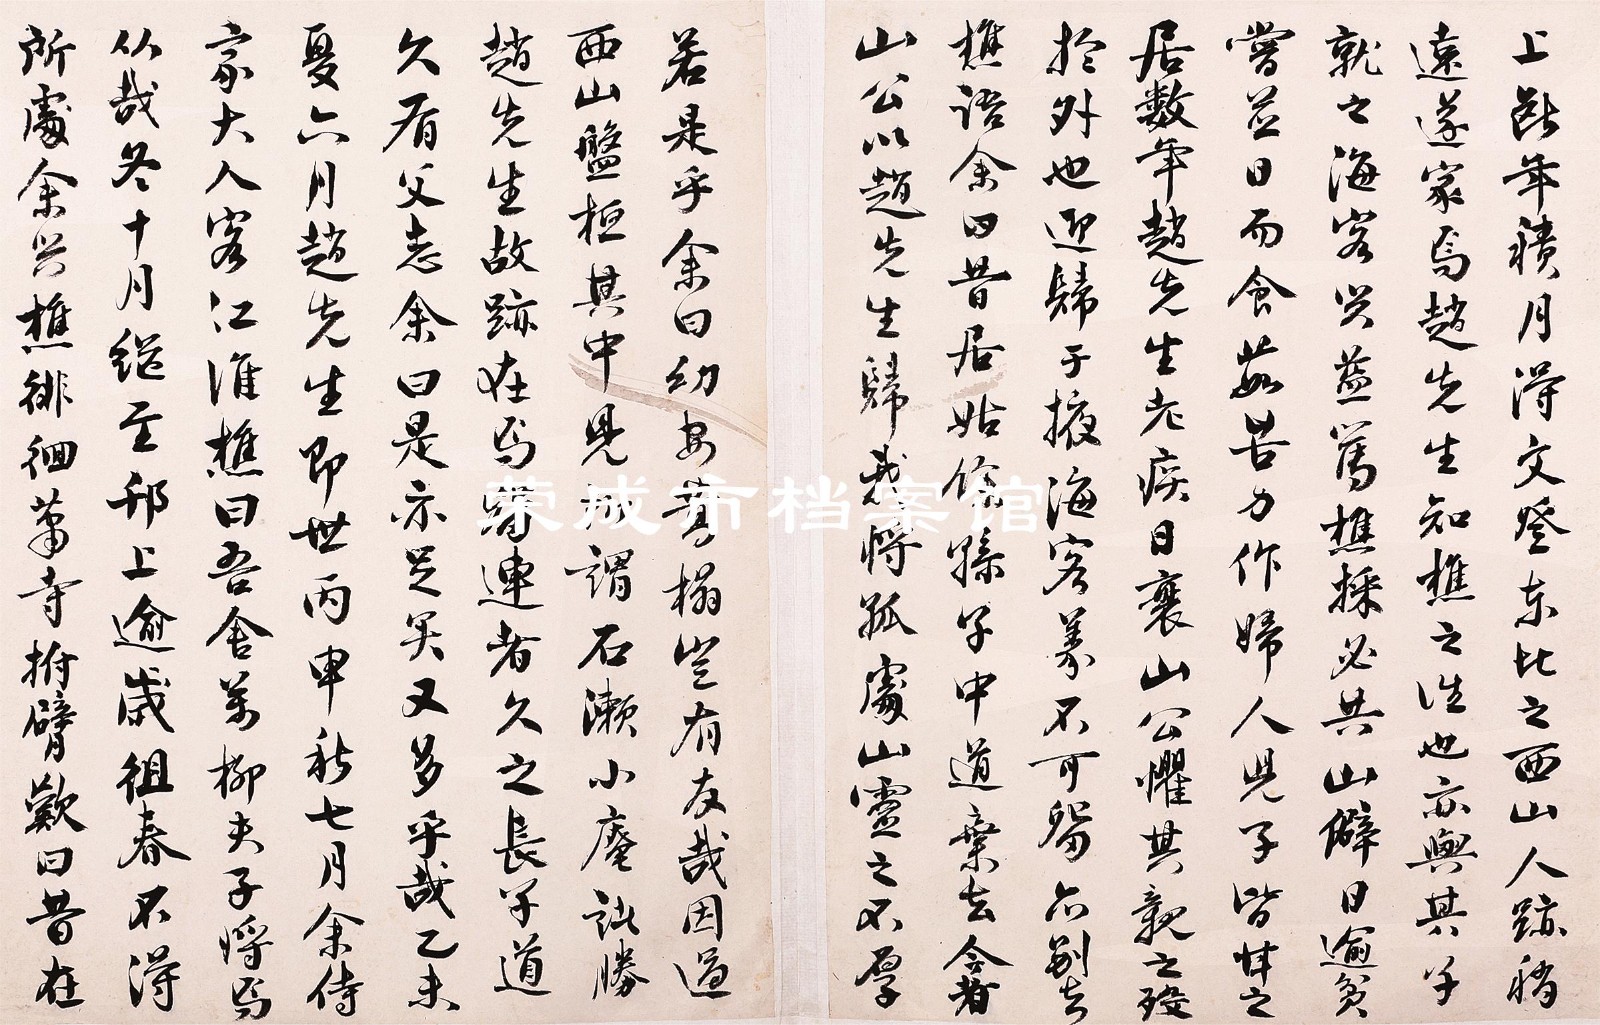 上踰年積月得文登東北之西山人跡稍
遠遂家焉趙先生知樵之往也亦與其子
就之海客與益篤樵採必共山僻日逾貧
嘗並日而食茹苦力作婦人兒子皆甘之
居数年趙先生老疾日衰山公懼其親之歿
於外也迎歸于掖海客義不可留亦別去
樵語余曰昔居姑餘孫子中道棄去今者
山公以趙先生歸我將孤處山靈之不厚
若是乎余曰幼安藜榻豈有友哉因過
西山盤桓其中見所謂石瀨小庵諸勝
趙先生故跡在焉留連者久之長子道
久有父志余曰是亦足矣又多乎哉乙未
夏六月趙先生即世丙申秋七月余侍
家大人客江淮樵曰吾舍萬柳夫子將焉
从哉冬十月繼至邗上逾歲徂春不得
所處余與樵徘徊蕭寺拊臂歎曰昔在
荣成市档案馆